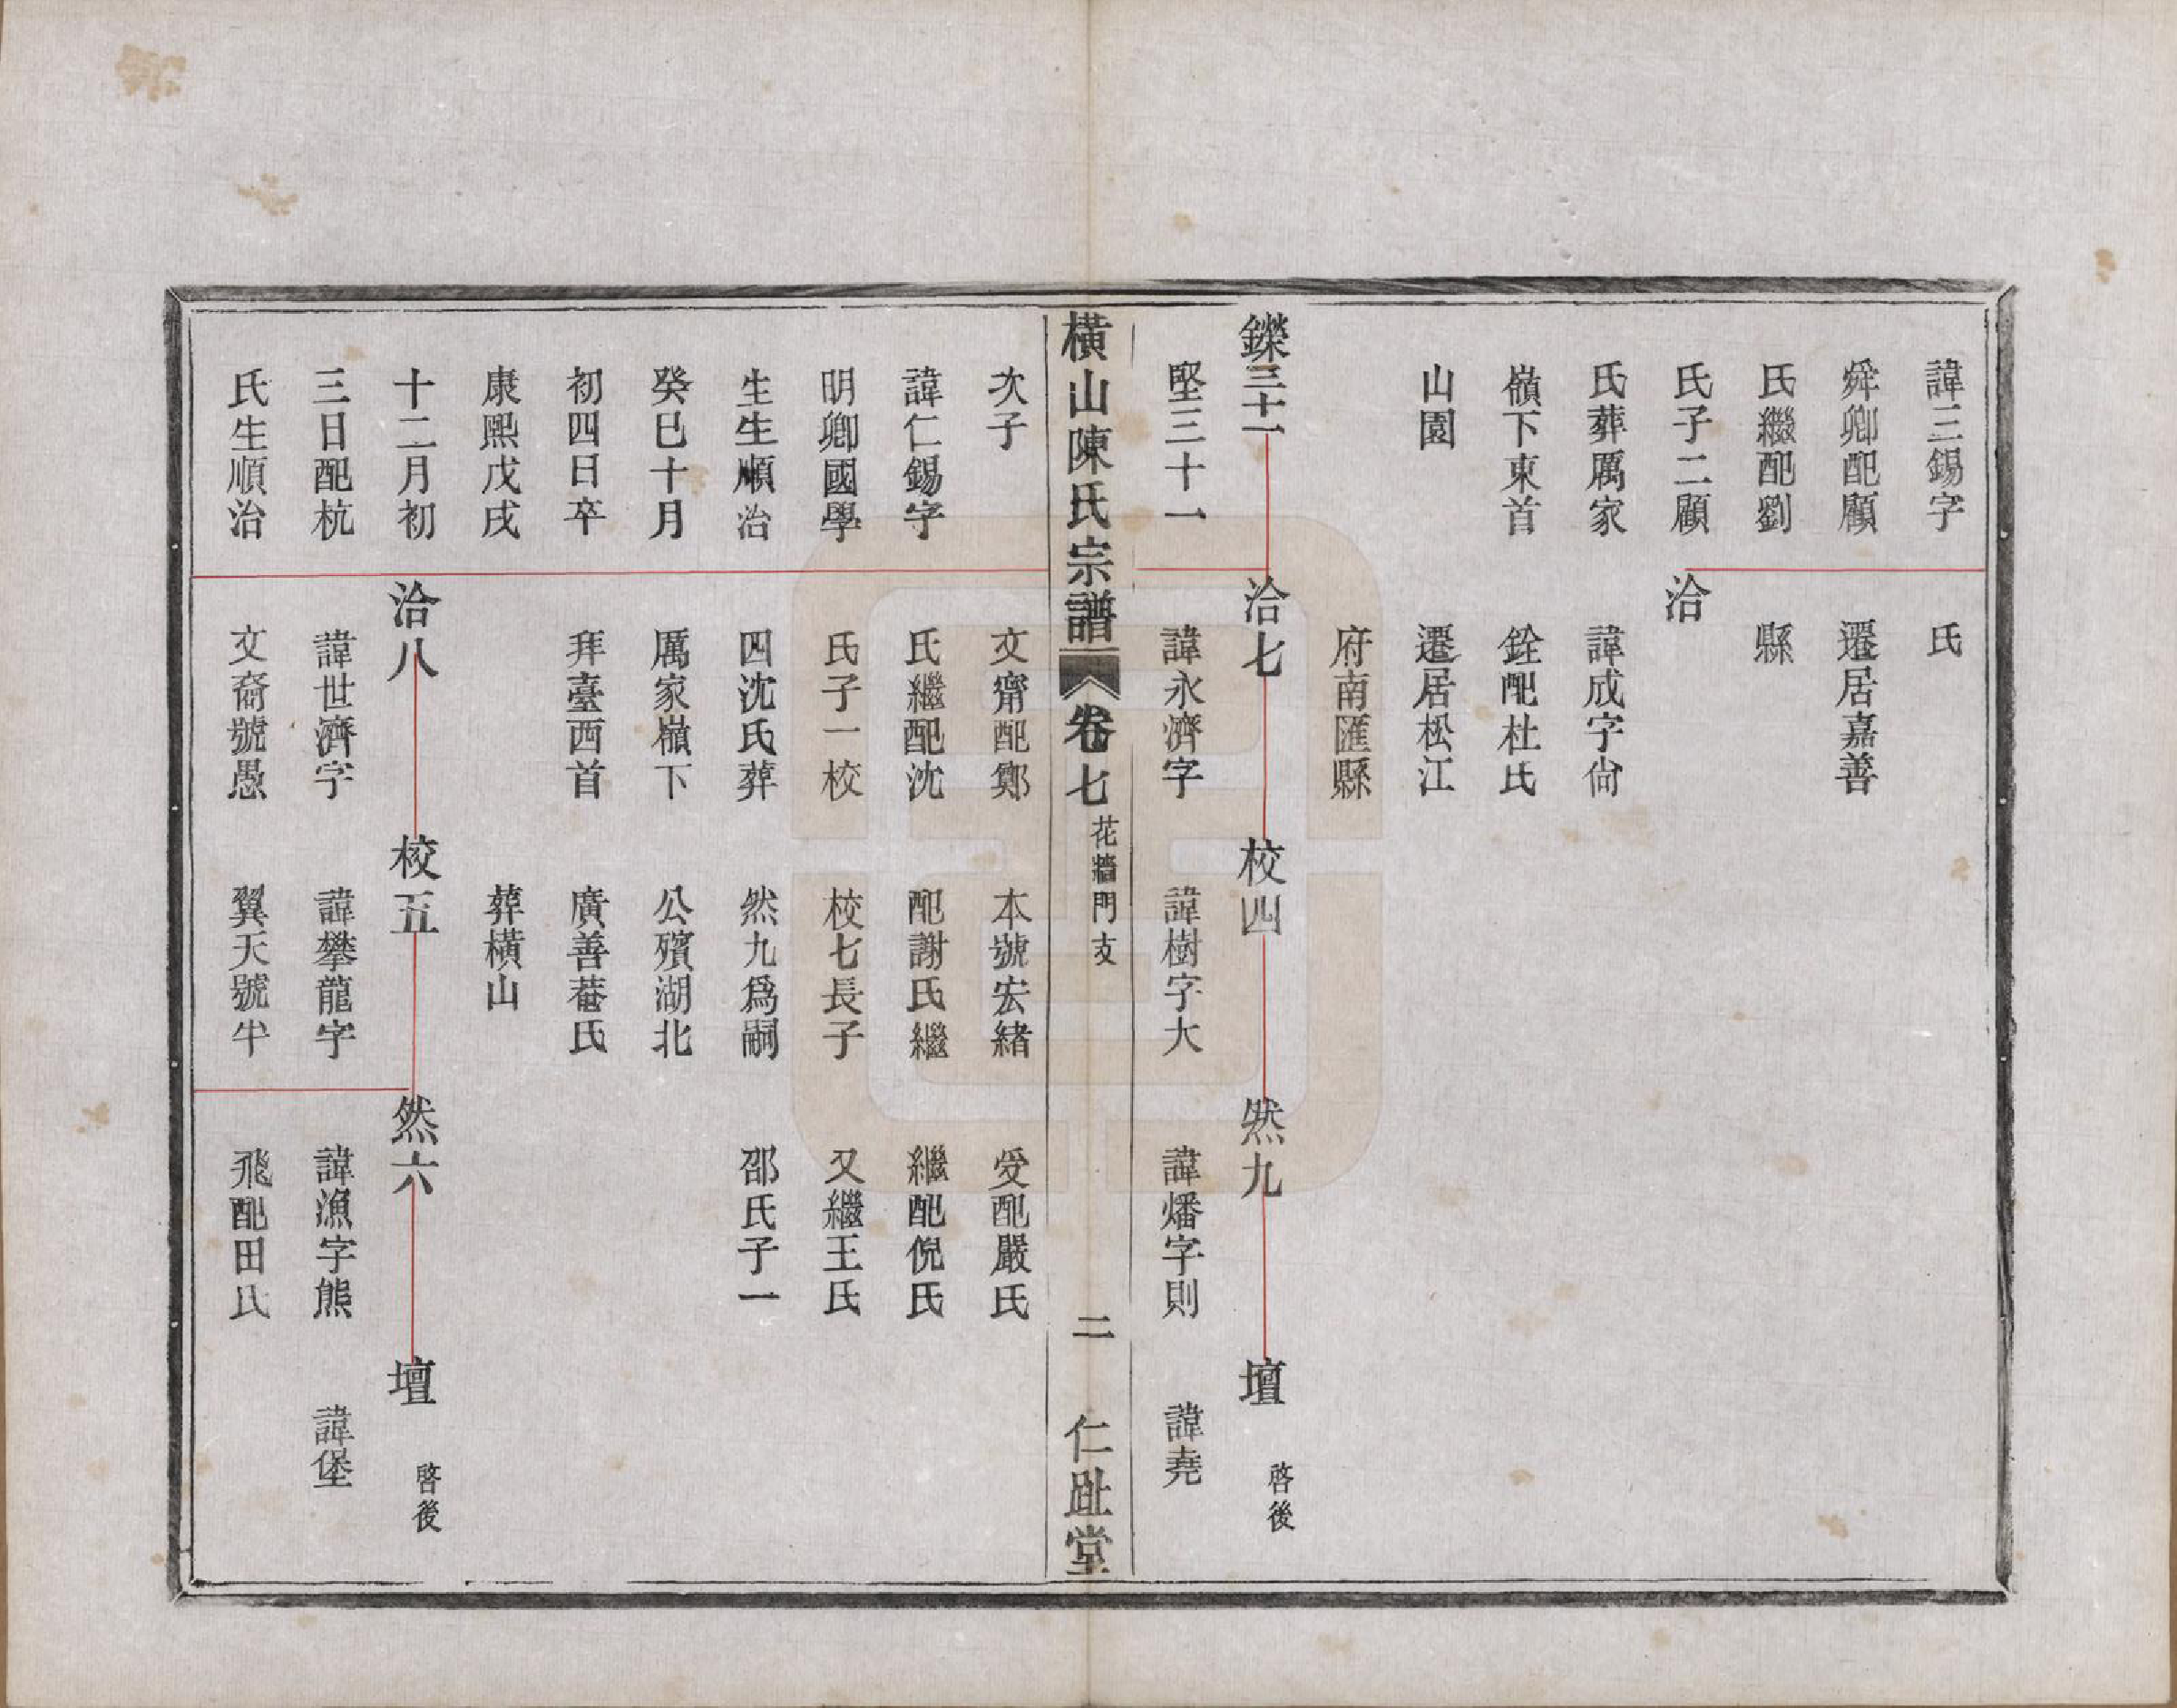 諱三錫字 氏
舜卿配顧 遷居嘉善
氏繼配劉 縣
氏子二顧 洽
氏葬厲家 諱成字尙
嶺下東首 銓配杜氏
山園 遷居松江
府南匯縣
鑠三十一 洽七 校四 然九 壇 啓後
堅三十一 諱永濟字 諱樹字大 諱燔字則 諱堯
橫山陳氏宗譜 卷七 花牆門支 二 仁趾堂
次子 文齋配鄭 本號宏緒 受配嚴氏
諱仁錫字 氏繼配沈 配謝氏繼 繼配倪氏
明卿國學 氏子一校 校七長子 又繼王氏
生生順治 四沈氏葬 然九爲嗣 邵氏子一
癸巳十月 厲家嶺下 公殯湖北
初四日卒 拜臺西首 廣善菴氏
康熙戊戌 葬橫山
十二月初 洽八 校五 然六 壇 啓後
三日配杭 諱世濟字 諱攀龍字 諱漁字熊 諱堡
氏生順治 文裔號愚 翼天號半 飛配田氏